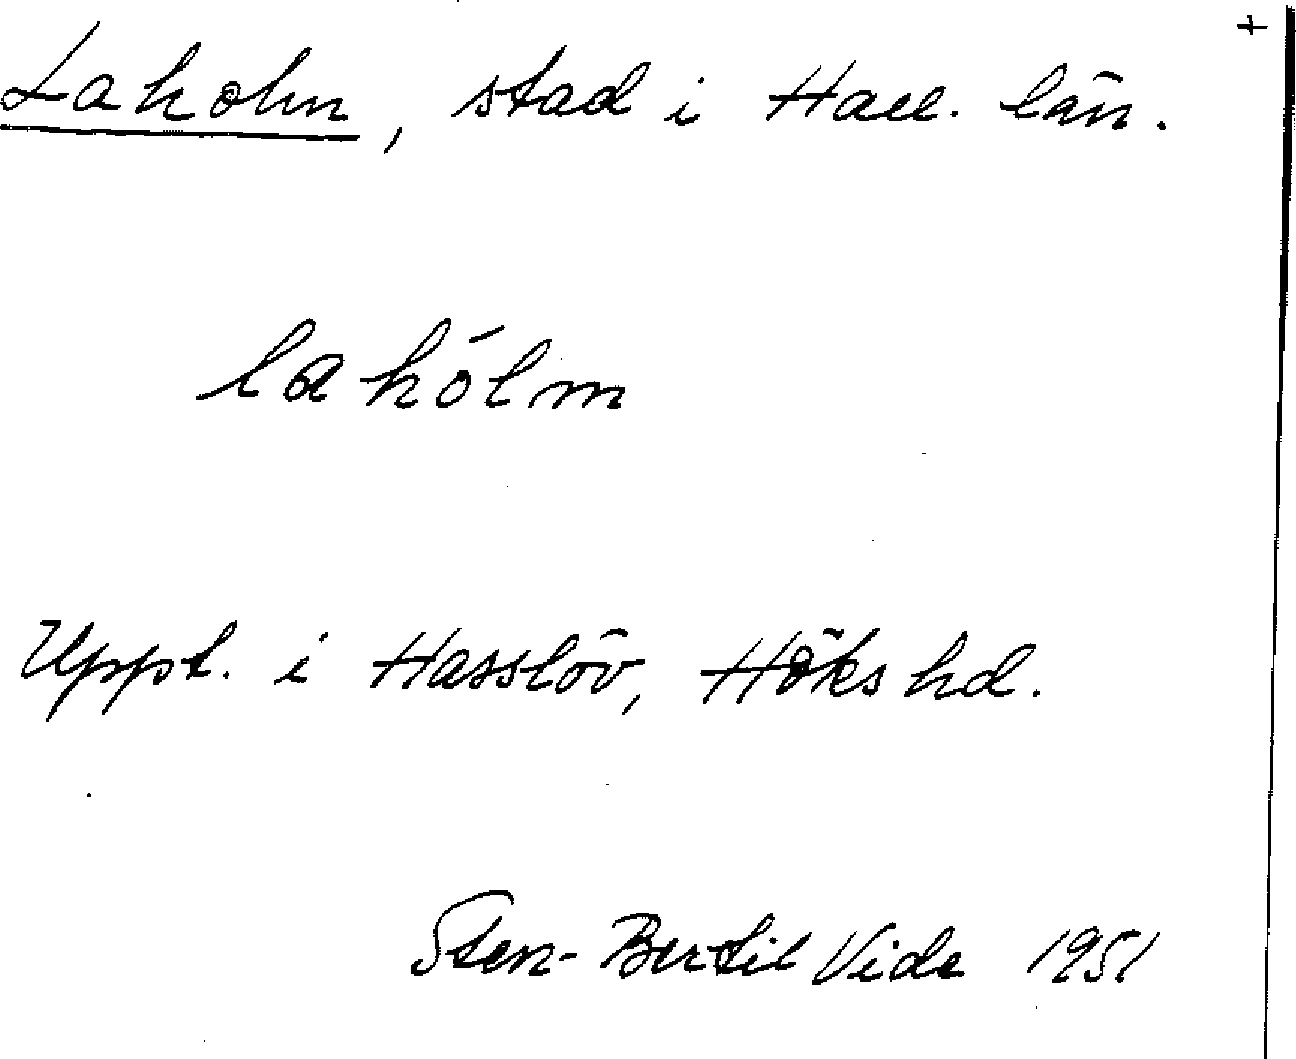 +
Laholm, stad i Hall. län.
lahólm
Uppt. i Hasslöv, Höks hd.
Sten-Bertil Vide 1951